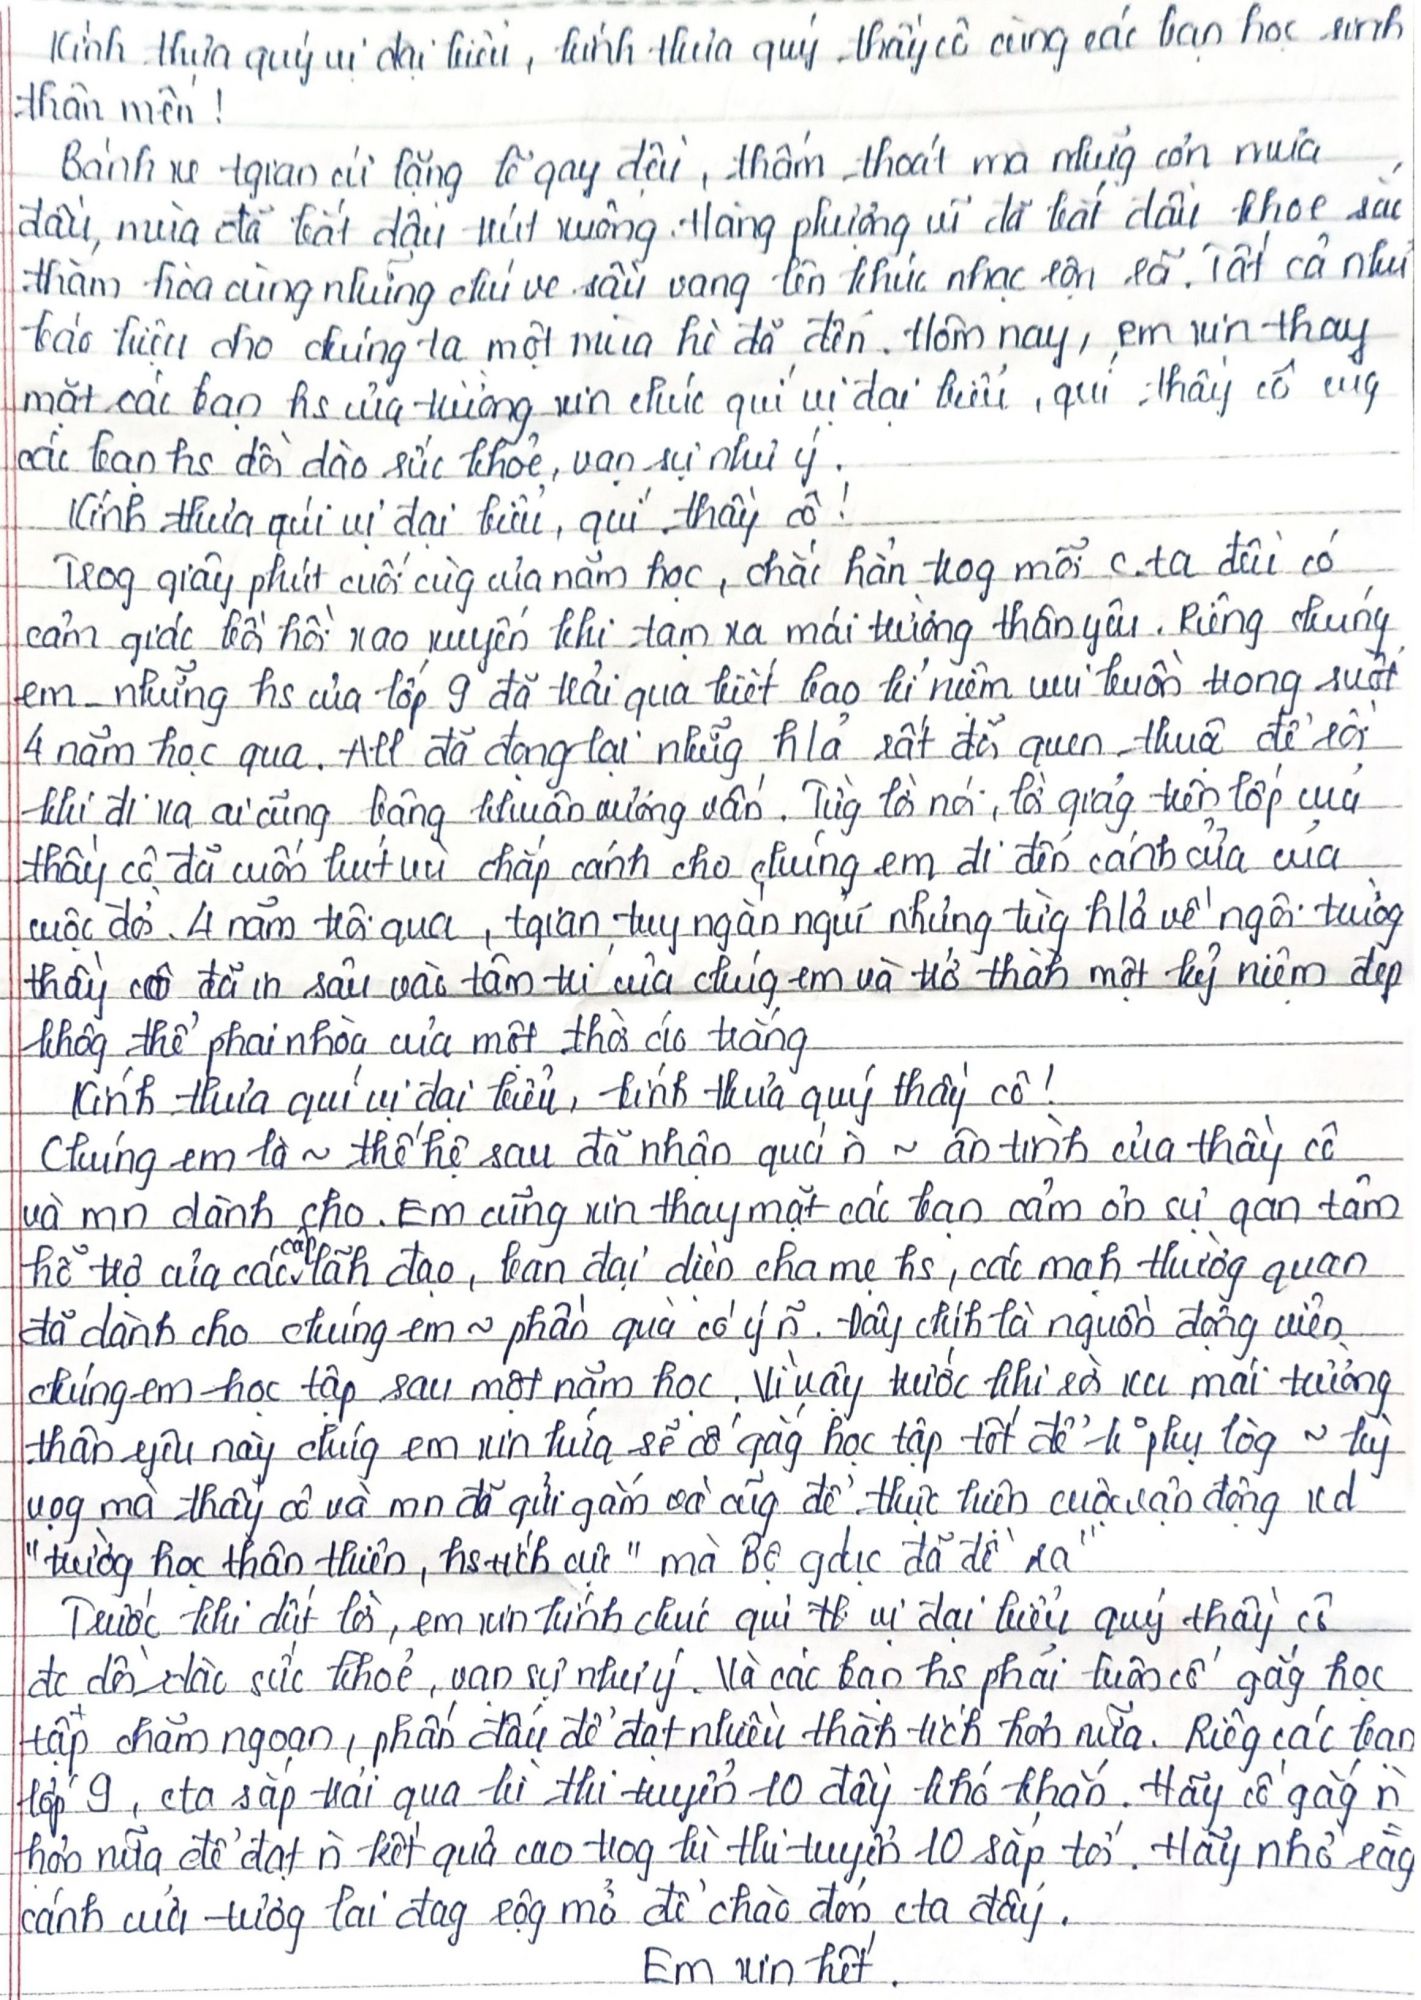 Kính thưa quý vị đại biểu, kính thưa quý thầy cô cùng các bạn học sinh
thân mến!
Bánh xe tgian cứ lặng lẽ qay đều, thấm thoát mà nhưg cơn mưa
đầu, mùa đã bắt đầu trút xuống. Hàng phượng vĩ đã bắt đầu khoe sắc
thắm hòa cùng những chú ve sầu vang lên khúc nhạc rộn rã. Tất cả như
báo hiệu cho chúng ta một mùa hè đã đến. Hôm nay, em xin thay
mặt các bạn hs của trường xin chúc quí vị đại biểu, quí thầy cô cug
các bạn hs dồi dào sức khoẻ, vạn sự như ý.
Kính thưa qúi vị đại biểu, quí thầy cô!
Trog giây phút cuối cùg của năm học, chắc hẳn trog mỗi c.ta đều có
cảm giác bồi hồi xao xuyến khi tạm xa mái trường thân yêu. Riêng chúng
em_ những hs của lớp 9 đã trải qua biết bao kỉ niệm vui buồn trong suốt
4 năm học qua. All đã đọng lại nhữg h/ả rất đỗi quen thuộc để rồi
khi đi xa ai cũng bâng khuân vướng vấn. Từg lời nói, lời giảg trên lớp của
thầy cô đã cuốn hút vài chắp cánh cho chúng em đi đến cánh cửa của
cuộc đời. 4 năm trôi qua, tgian tuy ngắn ngủi nhưng từg h/ả về ngôi trườg
thầy cô đã in sâu vào tâm trí của chúg em và trở thàh một kỷ niệm đẹp
khôg thể phai nhòa của một thời áo trắng
Kính thưa quí vị đại biểu, kính thưa quý thầy cô!
Chúng em là ~ thế hệ sau đã nhận quá ǹ ~ ân tình của thầy cô
và mn dành cho. Em cũng xin thay mặt các bạn cảm ơn sự qan tâm
hỗ trợ của các cấp lãh đạo, ban đại diện cha mẹ hs, các mạh thườg quan
đã dành cho chúng em ~ phần quà có ý ñ. Đây chíh là nguồn động viên
chúng em học tập sau một năm học. Vì vậy trước khi rời xa mái trường
thân yêu này chúg em xin hứa sẽ cố gắg học tập tốt để k° phụ lòg ~ kỳ
vọg mà thầy cô và mn đã gửi gắm và cũg để thực hiện cuộc vận động xd
"trườg học thân thiện, hs tích cực" mà Bộ gdục đã đề ra"
Trước khi dứt lời, em xin kính chúc quí vị đại biểu quý thầy cô
đc dồi dào sức khoẻ, vạn sự như ý. Và các bạn hs phải luôn cố gắg học
tập + chăm ngoan, phấn đấu để đạt nhiều thàh tích hơn nữa. Riêg các bạn
lớp 9, cta sắp trải qua kì thi tuyển 10 đầy khó khăn. Hãy cố gắg ǹ
hơn nữa để đạt ǹ kết quả cao trog kì thi tuyển 10 sắp tới. Hãy nhớ rằg
cánh cửa tươg lai đag rộg mở để chào đón cta đấy.
Em xin hết.